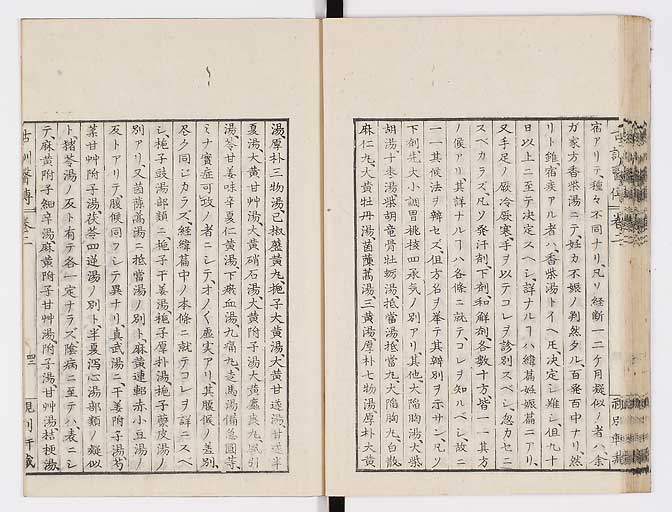 宿アリテ、種々不同ナリ、凡ソ経断一二ケ月疑似ノ者ハ、余
ガ家方香柴湯ニテ、妊カ不娠ノ判然タル、百発百中ナリ、然
リト雖、宿疾アル者ハ、香柴湯トイヘ𪜈決定シ難シ、但九十
日以上ニ至テ決定スベシ、詳ナルヿハ緯篇妊娠篇ニアリ、
又手足ノ厥冷厥寒手ヲ以テコレヲ診別スベシ、忽カセニ
スベカラズ、凡ソ発汗剤下剤和解剤各数十方、皆一一其方
ノ候アリ、其詳ナルヿハ各條ニ就テ、コレヲ知ルベシ、故ニ
一一其候法ヲ辨セズ、但方名ヲ挙テ其辨別ヲ示サン、凡ソ
下剤先大小調胃桃核四承気ノ別アリ、其他大陥胸湯大柴
胡湯、十棗湯、柴胡竜骨牡蛎湯、抵當湯、抵當丸、大陥胸丸、白散、
麻仁丸、大黄牡丹湯、茵蔯蒿湯、三黄湯、厚朴七物湯、厚朴大黄
湯、厚朴三物湯、己椒藶黄丸、梔子大黄湯、大黄甘遂湯、甘遂半
夏湯、大黄甘艸湯、大黄硝石湯、大黄附子湯、大黄䗪虫丸、風引
湯、苓甘姜味辛夏仁黄湯、下瘀血湯、九痛丸、走馬湯、備急圓等、
ミナ實症可攻ノ者ニシテ、オノ〱虚実アリ、其腹候ノ差別、
尽ク同シカラズ、経緯篇中ノ本條ニ就テコレヲ詳ニスベ
シ、梔子豉湯部類ニ、梔子干姜湯、梔子厚朴湯、梔子蘗皮湯ノ
別アリ、又茵蔯蒿湯ニ抵當湯ノ別ト、麻黄連軺赤小豆湯ノ
反トアリテ、腹候同フシテ異ナリ、真武湯ニ、干姜附子湯芍
薬甘艸附子湯、茯苓四逆湯ノ別ト、半夏瀉心湯部類ノ疑似
ト、猪苓湯ノ反ト有テ各一定ナラズ、陰病ニ至テハ、表ニシ
テ、麻黄附子細辛湯、麻黄附子甘艸湯、附子湯、甘艸湯、桔梗湯、